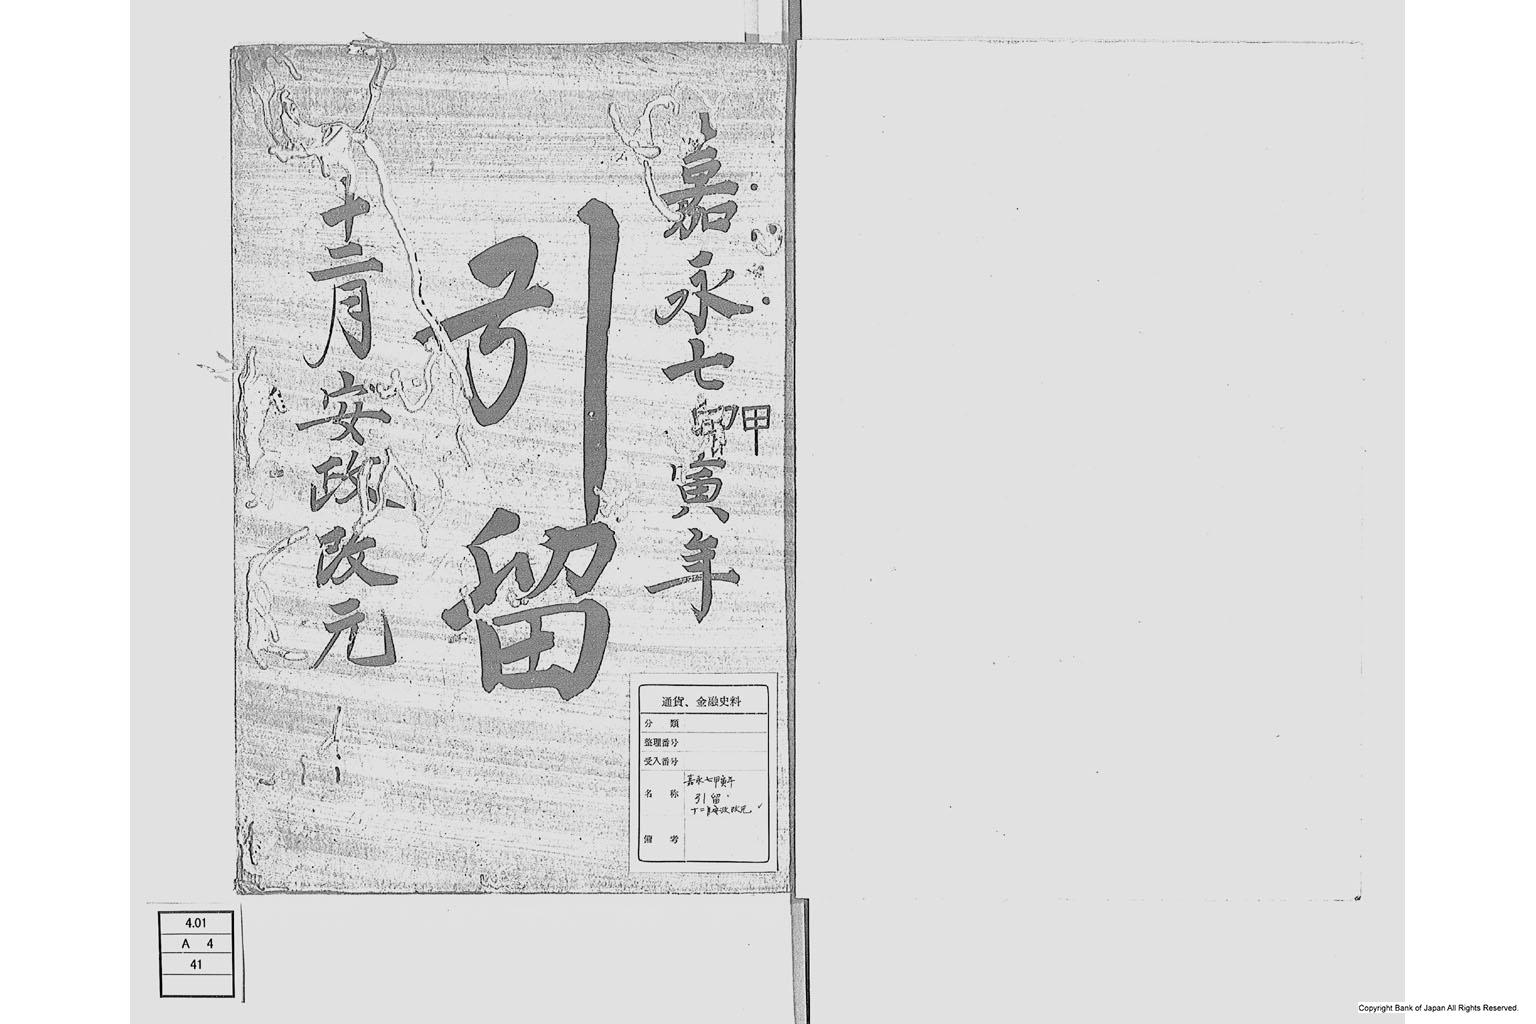 嘉永七甲寅年
引留
十二月安政改元
通貨、金融史料
分類
整理番号
受入番号
名称
嘉永七甲寅年
引留
十二月安政改元
備考
4.01
A 4
41
Copyright Bank of Japan All Rights Reserved.